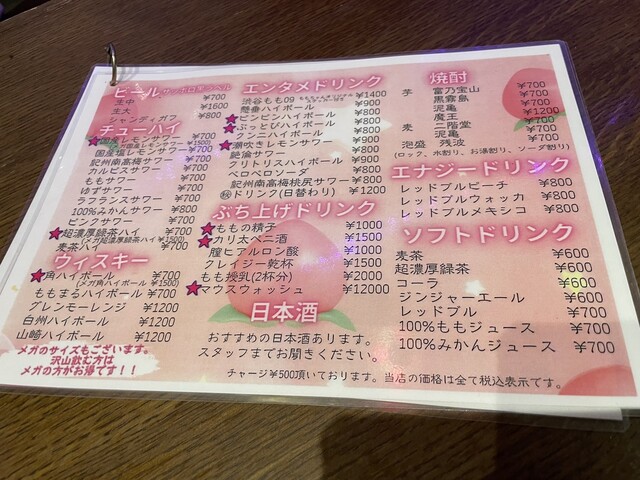 ビール サッポロ黒ラベル
生中 ¥700
生大 ¥1600
シャンディガフ ¥800
チューハイ
レモンサワー ¥700
国産塩レモンサワー ¥700
紀州南高梅サワー ¥700
カルピスサワー ¥700
ももサワー ¥700
ゆずサワー ¥700
ラフランスサワー ¥700
100%みかんサワー ¥800
ピンクサワー ¥700
超濃厚緑茶ハイ ¥700
(メガ超濃厚緑茶ハイ ¥1500)
麦茶ハイ ¥700
ウィスキー
角ハイボール ¥700
(メガ角ハイボール ¥1500)
ももまるハイボール ¥700
グレンモーレンジ ¥1200
白州ハイボール ¥1200
山崎ハイボール ¥1200
メガのサイズもございます。
沢山飲む方は
メガの方がお得です!!
エンタメドリンク
渋谷もも09 ¥1400
懸垂ハイボール ¥900
ビンビンハイボール ¥900
ぶっとびハイボール ¥800
クンニハイボール ¥800
潮吹きレモンサワー ¥900
絶倫サワー ¥800
クリトリスハイボール ¥900
ペロペロソーダ ¥800
紀州南高梅桃尻サワー ¥800
㊙ドリンク(日替わり) ¥1200
ぶち上げドリンク
ももの精子 ¥1000
カリ太ペニ酒 ¥1500
膣ヒアルロン酸 ¥1000
クレイジー乾杯 ¥1500
もも授乳(2杯分) ¥2000
マウスウォッシュ ¥12000
日本酒
おすすめの日本酒あります。
スタッフまでお聞きください。
チャージ¥500頂いております。当店の価格は全て税込表示です。
焼酎
芋 富乃宝山 ¥700
黒霧島 ¥700
泥亀 ¥700
魔王 ¥1200
麦 二階堂 ¥700
泥亀 ¥700
泡盛 残波 ¥700
(ロック、水割り、お湯割り、ソーダ割り)
エナジードリンク
レッドブルピーチ ¥800
レッドブルウォッカ ¥800
レッドブルメキシコ ¥800
ソフトドリンク
麦茶 ¥600
超濃厚緑茶 ¥600
コーラ ¥600
ジンジャーエール ¥600
レッドブル ¥700
100%ももジュース ¥700
100%みかんジュース ¥700